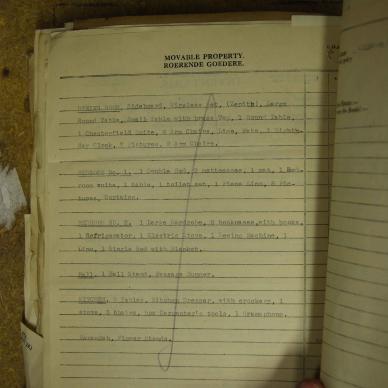 MOVABLE PROPERTY.
ROERENDE GOEDERE.
DINING ROOM, Sideboard, Wireless Set, (Zenith), Large
Round Table, Small Table with brass Top, 1 Round Table,
1 Chesterfield Suite, 2 Arm Chairs, Lino, Mats, 1 Eight-
Day Clock, Pictures, 2 Arm Chairs.
BEDROOM No. 1, 1 Double Bed, 2 mattresses, 1 Bed-
room suite, 1 Table, 1 toilet set, 1 Piece Lino, Pic-
tures, Curtains.
BEDROOM NO. 2, 1 Large Wardrobe, 2 bookcases, with books,
1 Refrigerator, 1 Electric Stove, 1 Sewing Machine, 1
Lino, 1 Single Bed with Blanket.
Hall, 1 Hall Stand, Passage Runner.
KITCHEN, Tables, Kitchen Dresser, with crockery, 1
stove, Chairs, Box Carpenter's tools, 1 Gramophone.
Verandah, Flower Stands.